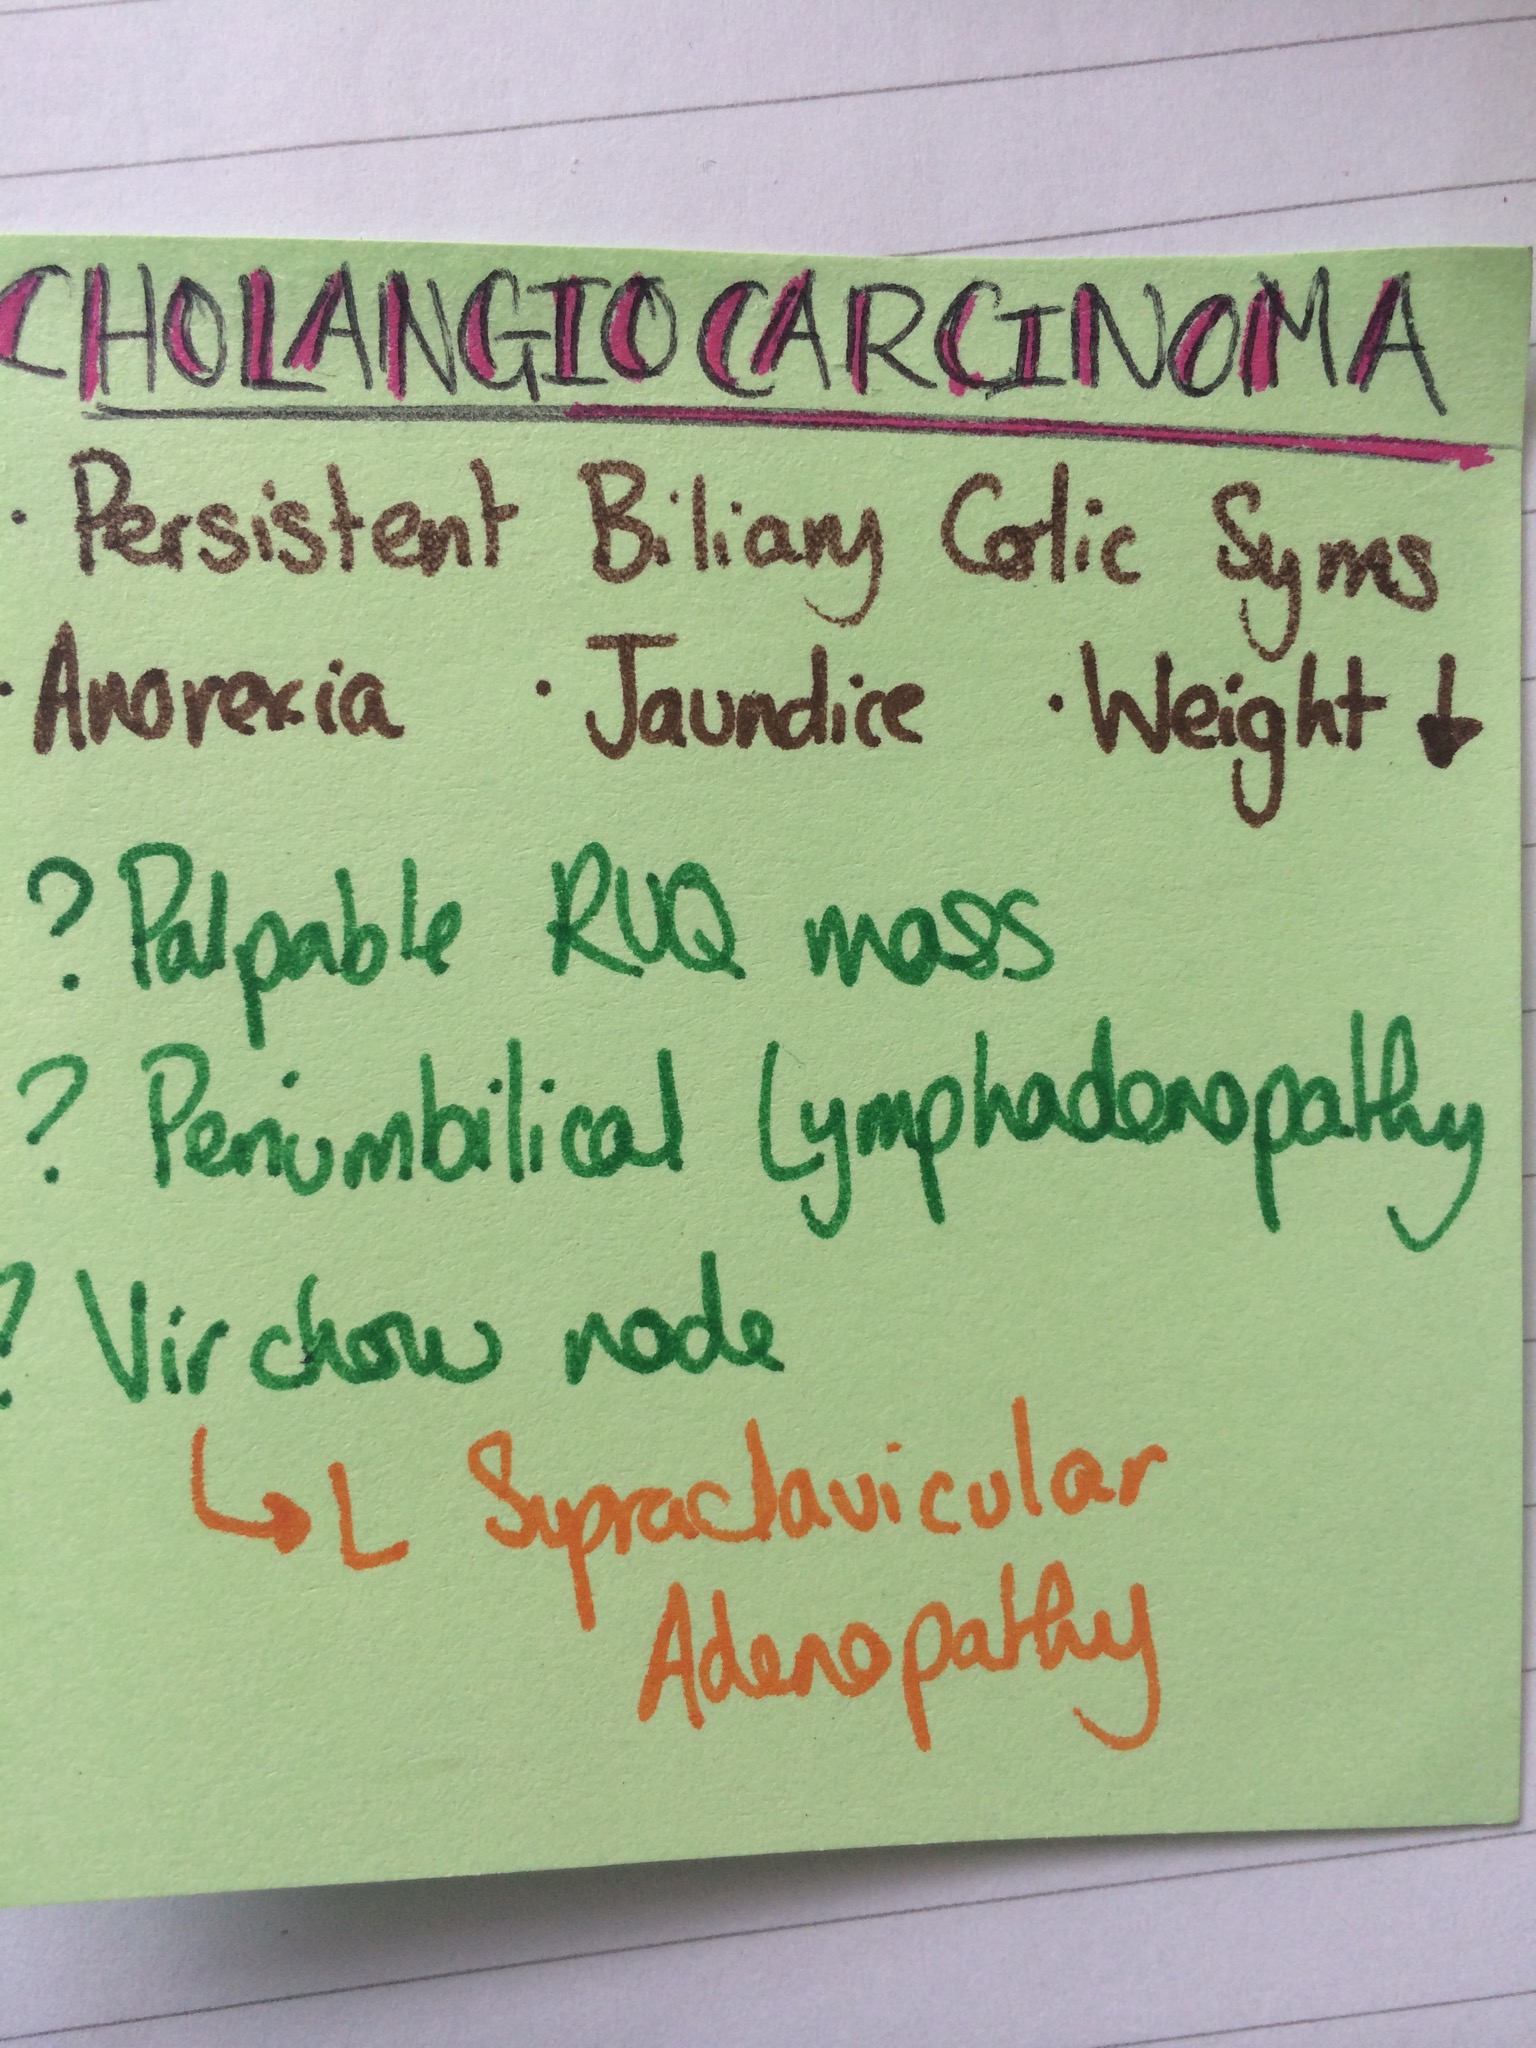 CHOLANGIOCARCINOMA
· Persistent Biliary Colic Syms
· Anorexia · Jaundice · Weight ↓
? Palpable RUQ mass
? Periumbilical Lymphadenopathy
? Virchow node
↳ L Supraclavicular
Adenopathy